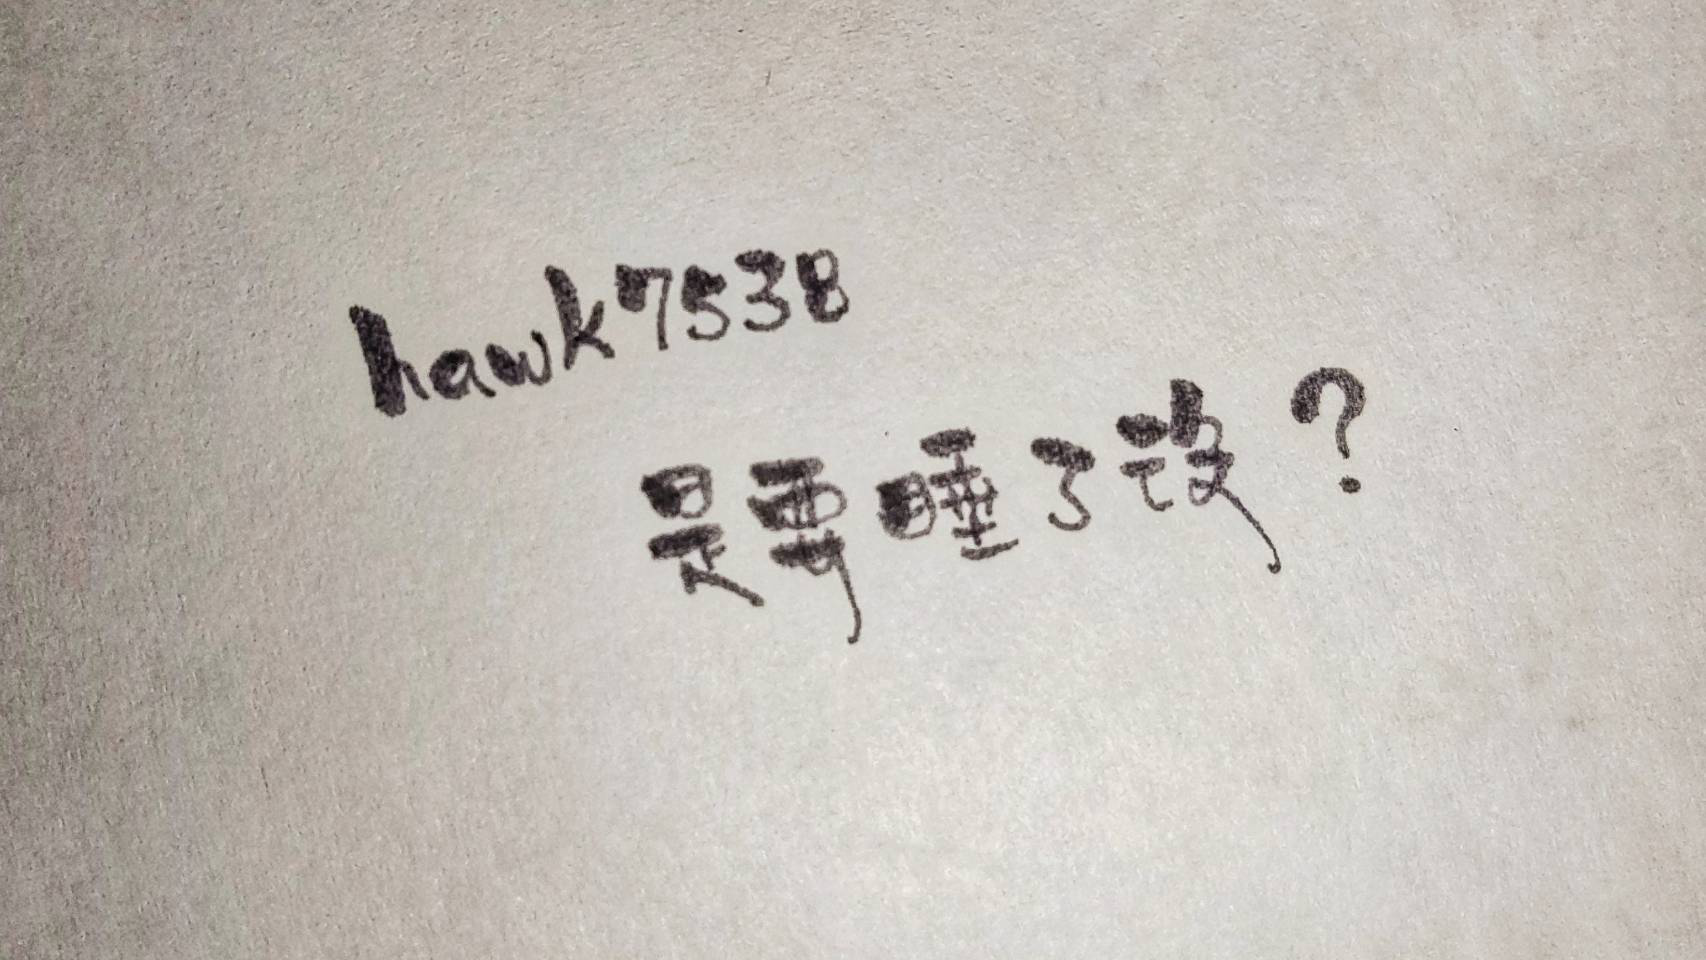 hawk7538
是要睡了沒？